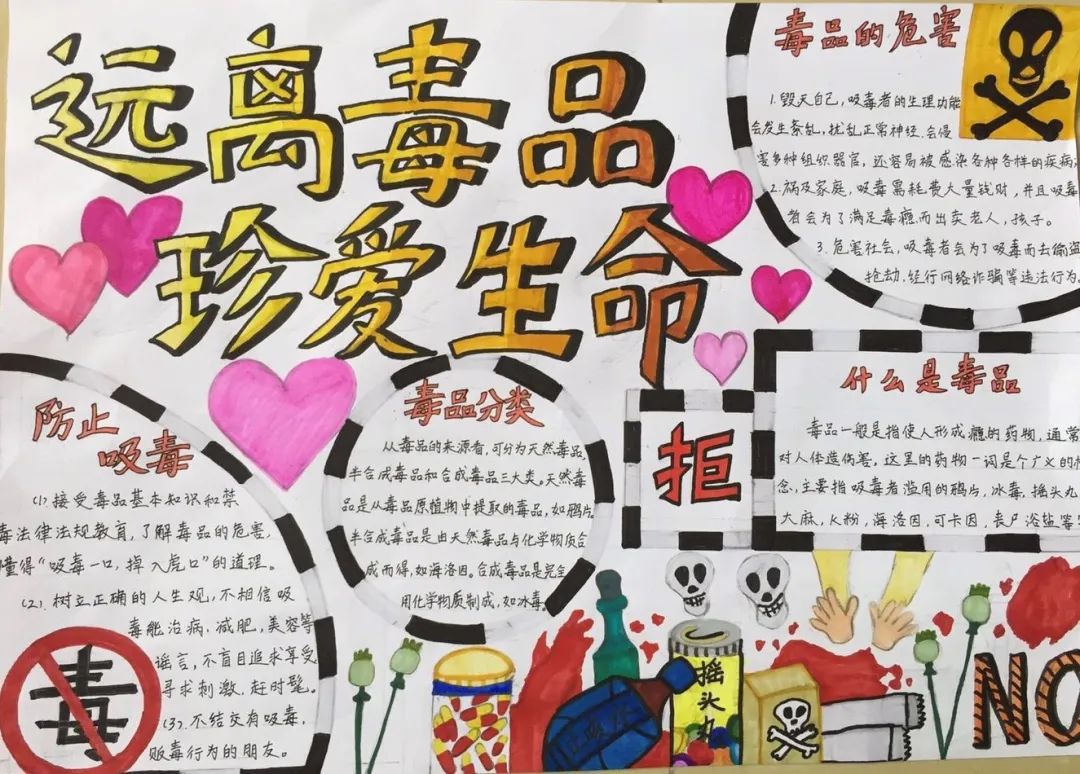 远离毒品
珍爱生命
毒品的危害
1.毁灭自己,吸毒者的生理功能
会发生紊乱,扰乱正常神经.会侵
害多种组织器官,还容易被感染各种各样的疾病;
2.祸及家庭,吸毒需耗费大量钱财,并且吸毒
者会为了满足毒瘾而出卖老人,孩子。
3.危害社会,吸毒者会为了吸毒而去偷盗
抢劫,进行网络诈骗等违法行为。
防止
吸毒
(1)接受毒品基本知识和禁
毒法律法规教育,了解毒品的危害,
懂得“吸毒一口,掉入虎口”的道理。
(2).树立正确的人生观,不相信吸
毒能治病,减肥,美容等
谣言,不盲目追求享受
寻求刺激,赶时髦。
(3).不结交有吸毒,
贩毒行为的朋友。
毒
毒品分类
从毒品的来源看,可分为天然毒品,
半合成毒品和合成毒品三大类。天然毒
品是从毒品原植物中提取的毒品,如鸦片,
半合成毒品是由天然毒品与化学物质合
成而得,如海洛因。合成毒品是完全
用化学物质制成,如冰毒。
拒
什么是毒品
毒品一般是指使人形成瘾的药物,通常
对人体造伤害,这里的药物一词是个广义的概
念,主要指吸毒者滥用的鸦片,冰毒,摇头丸
大麻,K粉,海洛因,可卡因,丧尸浴盐等
摇头丸
NO